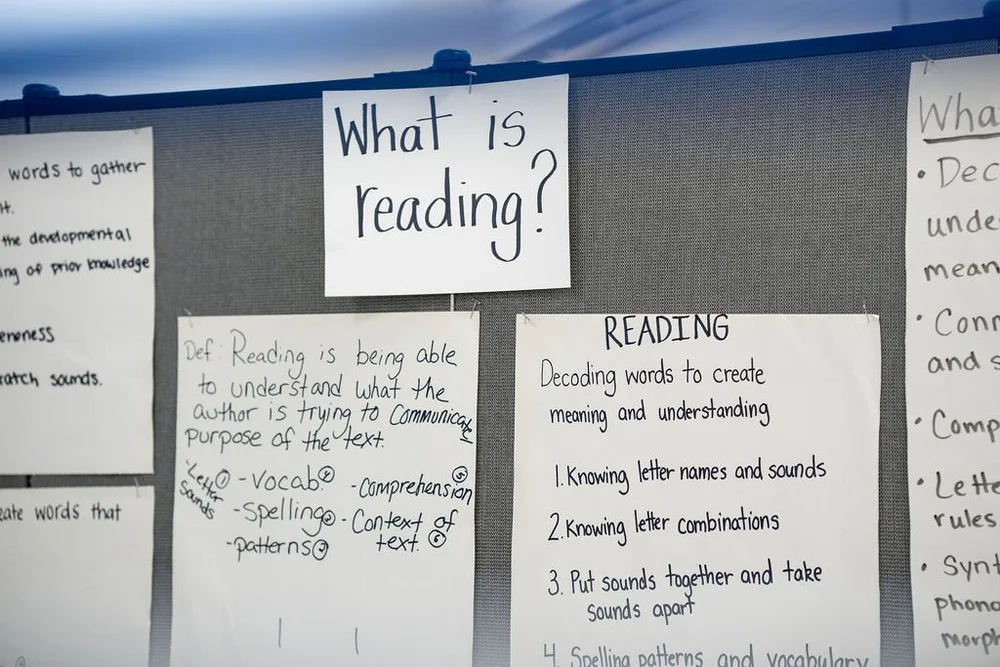 What is
reading?
words to gather
the developmental
of prior knowledge
sounds.
words that
Def: Reading is being able
to understand what the
author is trying to communicate
purpose of the text.
Letter ① - vocab. ④ - Comprehension ⑤
Sounds - Spelling ② - Context of
- patterns ③ text. ⑥
READING
Decoding words to create
meaning and understanding
1. Knowing letter names and sounds
2. Knowing letter combinations
3. Put sounds together and take
sounds apart
4. Spelling patterns and vocabulary
• 
•
and
•
•
rules
•